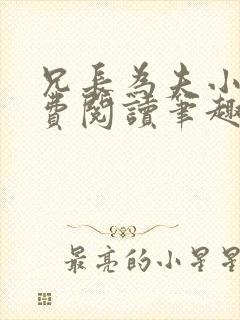 兄長為夫小
費閱讀筆趣
最亮的小星星